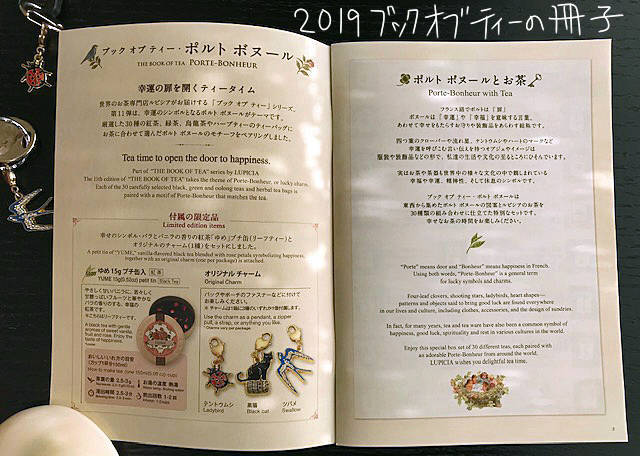 2019ブックオブティーの冊子
ブック オブ ティー・ポルト ボヌール
THE BOOK OF TEA PORTE-BONHEUR
幸運の扉を開くティータイム
世界のお茶専門店ルピシアがお届けする「ブック オブ ティー」シリーズ。
第11弾は、幸運のシンボルとなるポルト ボヌールがテーマです。
厳選した30種の紅茶、緑茶、烏龍茶やハーブティーのティーバッグに
お茶に合わせて選んだポルト ボヌールのモチーフをペアリングしました。
Tea time to open the door to happiness.
Part of "THE BOOK OF TEA" series by LUPICIA
The 11th edition of "THE BOOK OF TEA" takes the theme of Porte-Bonheur, or lucky charm.
Each of the 30 carefully selected black, green and oolong teas and herbal tea bags is
paired with a motif of Porte-Bonheur that matches the tea.
付属の限定品
Limited edition items
幸せのシンボル・バラとバニラの香りの紅茶「ゆめ」プチ缶(リーフティー)と
オリジナルのチャーム(1種)をセットにしました。
A petit tin of "YUME," vanilla-flavored black tea blended with rose petals symbolizing happiness,
together with an original charm (one per package) is attached.
ゆめ 15g プチ缶入 紅茶
YUME 15g(0.53oz) petit tin Black Tea
やさしく甘いバニラに、若々しく
甘酸っぱいフルーツと華やかな
バラの香りのする、幸福の
紅茶です。
A black tea with gentle
aromas of sweet vanilla,
fruit and rose. Enjoy the
taste of happiness.
おいしいいれ方の目安
(カップ1杯分150ml)
茶葉の量 2.5-3g
お湯の温度 熱湯
浸出時間 2.5-3分
煎出回数 1-2回
オリジナル チャーム
Original Charm
バッグやポーチのファスナーなどに付けて
お楽しみください。
※チャームは1箱に3種のいずれか1つが付属します。
Use the charm as a pendant, a zipper
pull, a strap, or anything you like.
Charms vary per package.
テントウムシ
Ladybird
黒猫
Black cat
ツバメ
Swallow
ポルト ボヌールとお茶
Porte-Bonheur with Tea
フランス語でポルトは「扉」
ボヌールは「幸運」や「幸福」を意味する言葉。
あわせて幸せをもたらすお守りや装飾品をあらわす総称です。
四つ葉のクローバーや流れ星、テントウムシやハートのマークなど
幸運を呼びこむ言い伝えを持つオブジェやイメージは
服装や装飾品などの形で、私達の生活や文化の至るところにひそんでいます。
実はお茶や茶器も世界中の様々な文化の中で親しまれている
幸福や幸運、精神性、そして休息のシンボルです。
ブック オブ ティー・ポルト ボヌールは
東西から集めたポルト ボヌールの図案とルピシアのお茶を
30種類の組み合わせに仕立てた特別なセットです。
幸せなお茶の時間をお楽しみください。
"Porte" means door and "Bonheur" means happiness in French.
Using both words, "Porte-Bonheur" is a general term
for lucky symbols and charms.
Four-leaf clovers, shooting stars, ladybirds, heart shapes—
patterns and objects said to bring good luck are found everywhere
in our lives and culture, including clothes, accessories, and the design of sundries.
In fact, for many years, tea and tea ware have also been a common symbol of
happiness, good luck, spirituality and rest in various cultures in the world.
Enjoy this special box set of 30 different teas, each paired with
an adorable Porte-Bonheur from around the world.
LUPICIA wishes you delightful tea time.
3